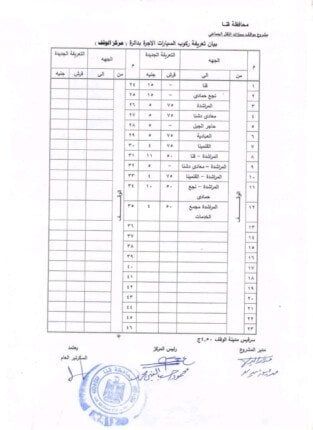 محافظة قنا
مشروع مواقف سيارات النقل الجماعي
بيان تعريفة ركوب السيارات الاجرة بدائرة / مركز الوقف .
م الجهه التعريفة الجديدة م الجهه التعريفة الجديدة
من الى قرش جنيه من الى قرش جنيه
١ قنا ١٥ ٢٤
٢ نجع حمادى ١٥ ٢٥
٣ المراشدة ٧٥ ٥ ٢٦
٤ معادى دشنا ٧٥ ٥ ٢٧
٥ حاجر الجبل ٥ ٢٨
٦ العبادية ٧٥ ٥ ٢٩
٧ القلمينا ٧٥ ٤ ٣٠
٨ المراشدة – قنا ٥٠ ١١ ٣١
٩ المراشدة – معادى دشنا ٣٢
١٠ المراشدة – القلمينا ٧٥ ٣٣
١١ المراشدة – نجع حمادى ٥٠ ١٠ ٣٤
١٢ المراشدة مجمع الخدمات ٥٠ ٤ ٣٥
١٣ ٣٦
١٤ ٣٧
١٥ ٣٨
١٦ ٣٩
١٧ ٤٠
١٨ ٤١
١٩ ٤٢
٢٠ ٤٣
٢١ ٤٤
٢٢ ٤٥
٢٣ ٤٦
الوقف الوقف
سرفيس مدينة الوقف ١,٥٠ج
مدير المشروع رئيس المركز يعتمد
السكرتير العام